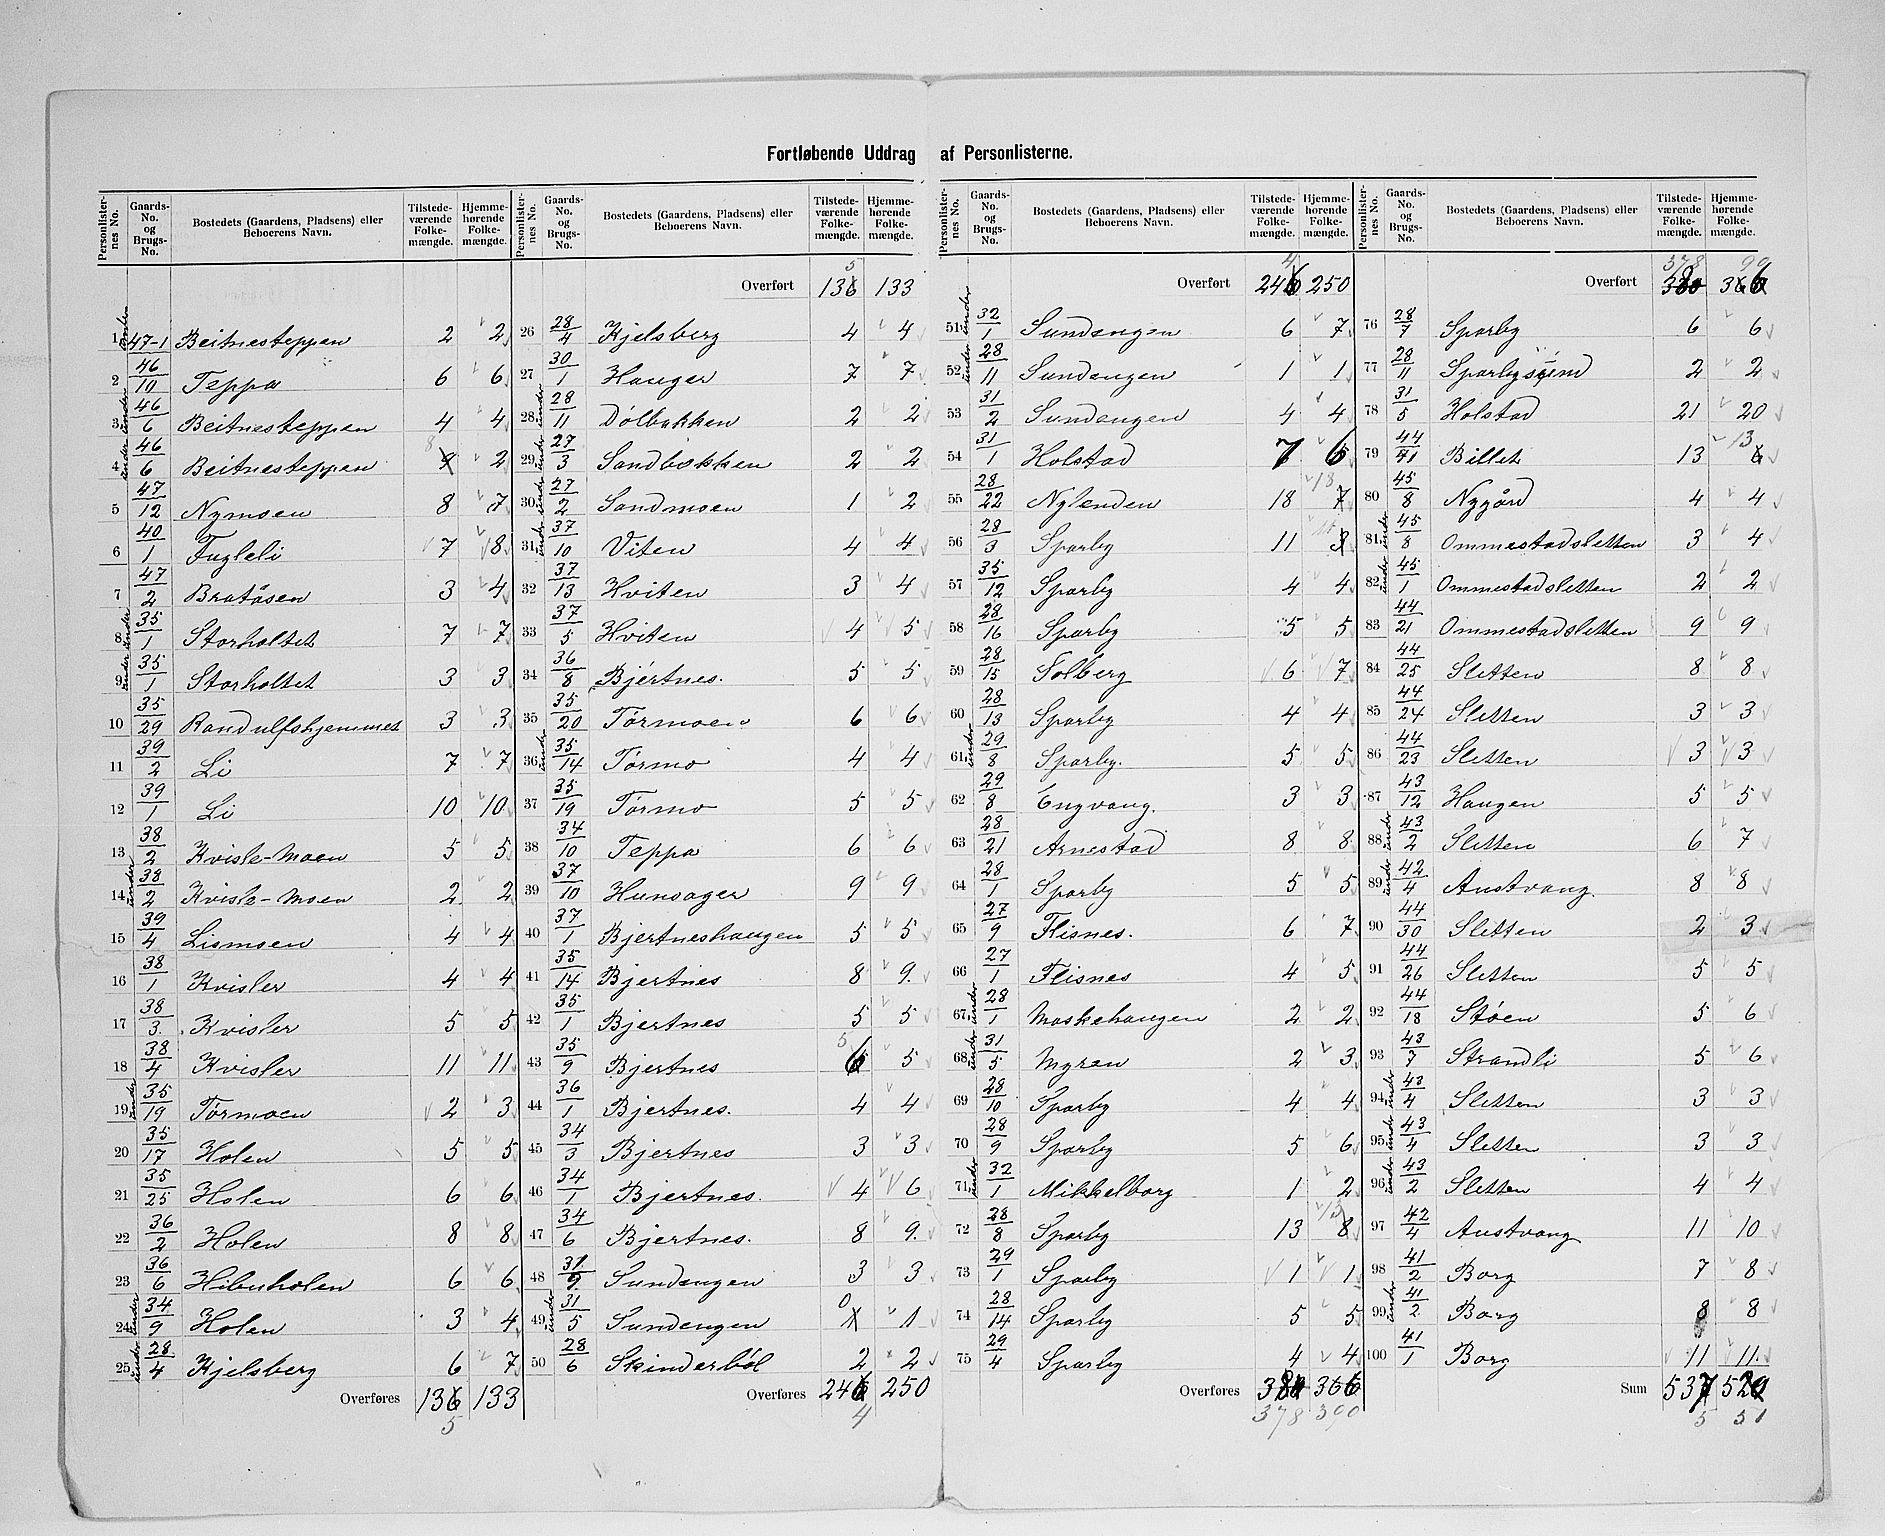 Fortløbende Uddrag af Personlisterne.
Personlister-nes No. | Gaards-No. og Brugs-No. | Bostedets (Gaardens, Pladsens) eller Beboerens Navn. | Tilstede-værende Folke-mængde. | Hjemme-hørende Folke-mængde.
1 under 47-1 Beitnesteppen 2 2
2 46/10 Teppa 6 6
3 under 46/6 Beitnesteppen 4 4
4 under 46/6 Beitnesteppen 8 2
5 47/12 Nymoen 8 7
6 40/1 Fugleli 7 8
7 47/2 Bratåsen 3 4
8 under 35/1 Storholtet 7 7
9 under 35/1 Storholtet 3 3
10 35/29 Randulfshjemmet 3 3
11 39/2 Li 7 7
12 39/1 Li 10 10
13 38/2 Kvisle-Moen 5 5
14 under 38/2 Kvisle-Moen 2 2
15 39/4 Lismoen 4 4
16 38/1 Kvisler 4 4
17 38/3 Kvisler 5 5
18 38/4 Kvisler 11 11
19 under 35/19 Tørmoen 2 3
20 35/17 Holen 5 5
21 35/25 Holen 6 6
22 36/2 Holen 8 8
23 36/6 Hibuholen 6 6
24 under 34/9 Holen 3 4
25 under 28/4 Kjelsberg 6 7
Overføres 136 133
5
Personlister-nes No. | Gaards-No. og Brugs-No. | Bostedets (Gaardens, Pladsens) eller Beboerens Navn. | Tilstede-værende Folke-mængde. | Hjemme-hørende Folke-mængde.
5
Overført 136 133
26 28/4 Kjelsberg 4 4
27 30/1 Hauger 7 7
28 under 28/11 Dølbakken 2 2
29 under 27/3 Sandbakken 2 2
30 under 27/2 Sandmoen 1 2
31 under 37/10 Viten 4 4
32 37/13 Hviten 3 4
33 37/5 Hviten 4 5
34 36/8 Bjertnes. 5 5
35 35/20 Tørmoen 6 6
36 under 35/14 Tørmo 4 4
37 35/19 Tørmo 5 5
38 34/10 Teppa 6 6
39 37/10 Hunsager 9 9
40 37/1 Bjertneshaugen 5 5
41 35/14 Bjertnes 8 9.
42 35/1 Bjertnes 5 5
43 35/9 Bjertnes 6 5
44 36/1 Bjertnes. 4 4
45 34/3 Bjertnes 3 3
46 34/1 Bjertnes. 4 6
47 34/6 Bjertnes. 8 9.
48 31/9 Sundengen 3 3
49 under 31/5 Sundengen 0 1
50 28/6 Skinderbøl 2 2
Overføres 246 250
4
Personlister-nes No. | Gaards-No. og Brugs-No. | Bostedets (Gaardens, Pladsens) eller Beboerens Navn. | Tilstede-værende Folke-mængde. | Hjemme-hørende Folke-mængde.
4
Overført 246 250
51 under 32/1 Sundengen 6 7
52 under 28/11 Sundengen 1 1
53 31/2 Sundengen 4 4
54 31/1 Holstad 7 6
55 28/22 Nylenden 18 7 18
56 28/3 Sparby 11 3
57 35/12 Sparby 4 4
58 28/16 Sparby 5 5
59 28/15 Solberg 6 7
60 28/13 Sparby 4 4
61 under 29/8 Sparby. 5 5
62 29/8 Engvang. 3 3
63 28/21 Arnestad 8 8
64 28/1 Sparby 5 5
65 27/9 Flisnes. 6 7
66 27/1 Flisnes 4 5
67 under 28/1 Moskehaugen 2 2
68 under 31/5 Myran 2 3
69 28/10 Sparby 4 4
70 28/9 Sparby 5 6
71 under 32/1 Mikkelborg 1 2
72 28/8 Sparby 13 8 13
73 29/1 Sparby 1 1
74 28/14 Sparby 5 5
75 29/4 Sparby 4 4
Overføres 380 366
378 390
Personlister-nes No. | Gaards-No. og Brugs-No. | Bostedets (Gaardens, Pladsens) eller Beboerens Navn. | Tilstede-værende Folke-mængde. | Hjemme-hørende Folke-mængde.
378 99
Overført 380 366
76 28/7 Sparby 6 6
77 28/11 2 2
78 31/5 Holstad 21 20
79 44/71 Billet 13 6 13
80 45/8 Nygård 4 4
81 under 45/8 Ommestadsletten 3 4
82 under 45/1 Ommestadsletten 2 2
83 44/21 Ommestadsletten 9 9
84 44/25 Sletten 8 8
85 44/24 Sletten 3 3
86 44/23 Sletten 3 3
87 43/12 Haugen 5 5
88 under 43/2 Sletten 6 7
89 under 42/4 Austvang. 8 8
90 44/30 Sletten 2 3
91 44/26 Sletten 5 5
92 44/18 Støen 5 6
93 43/7 Strandli 5 6
94 under 43/4 Sletten 3 3
95 under 43/4 Sletten 3 3
96 under 43/2 Sletten 4 4
97 42/4 Austvang 11 10
98 41/2 Borg 7 8
99 under 41/2 Borg 8 8
100 41/1 Borg 11 11.
Sum 537 520
5 51